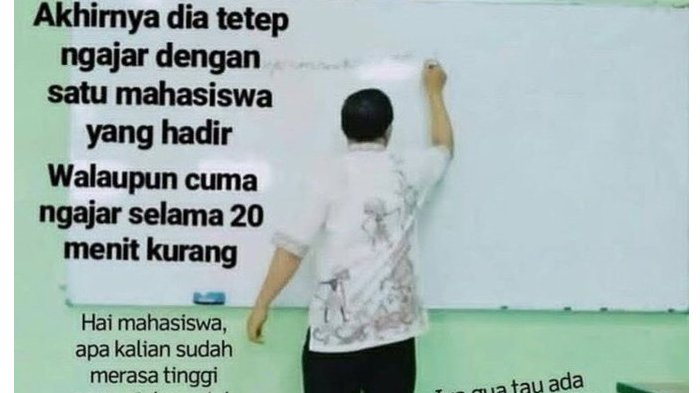 Akhirnya dia tetep
ngajar dengan
satu mahasiswa
yang hadir
Walaupun cuma
ngajar selama 20
menit kurang
Hai mahasiswa,
apa kalian sudah
merasa tinggi
gua tau ada